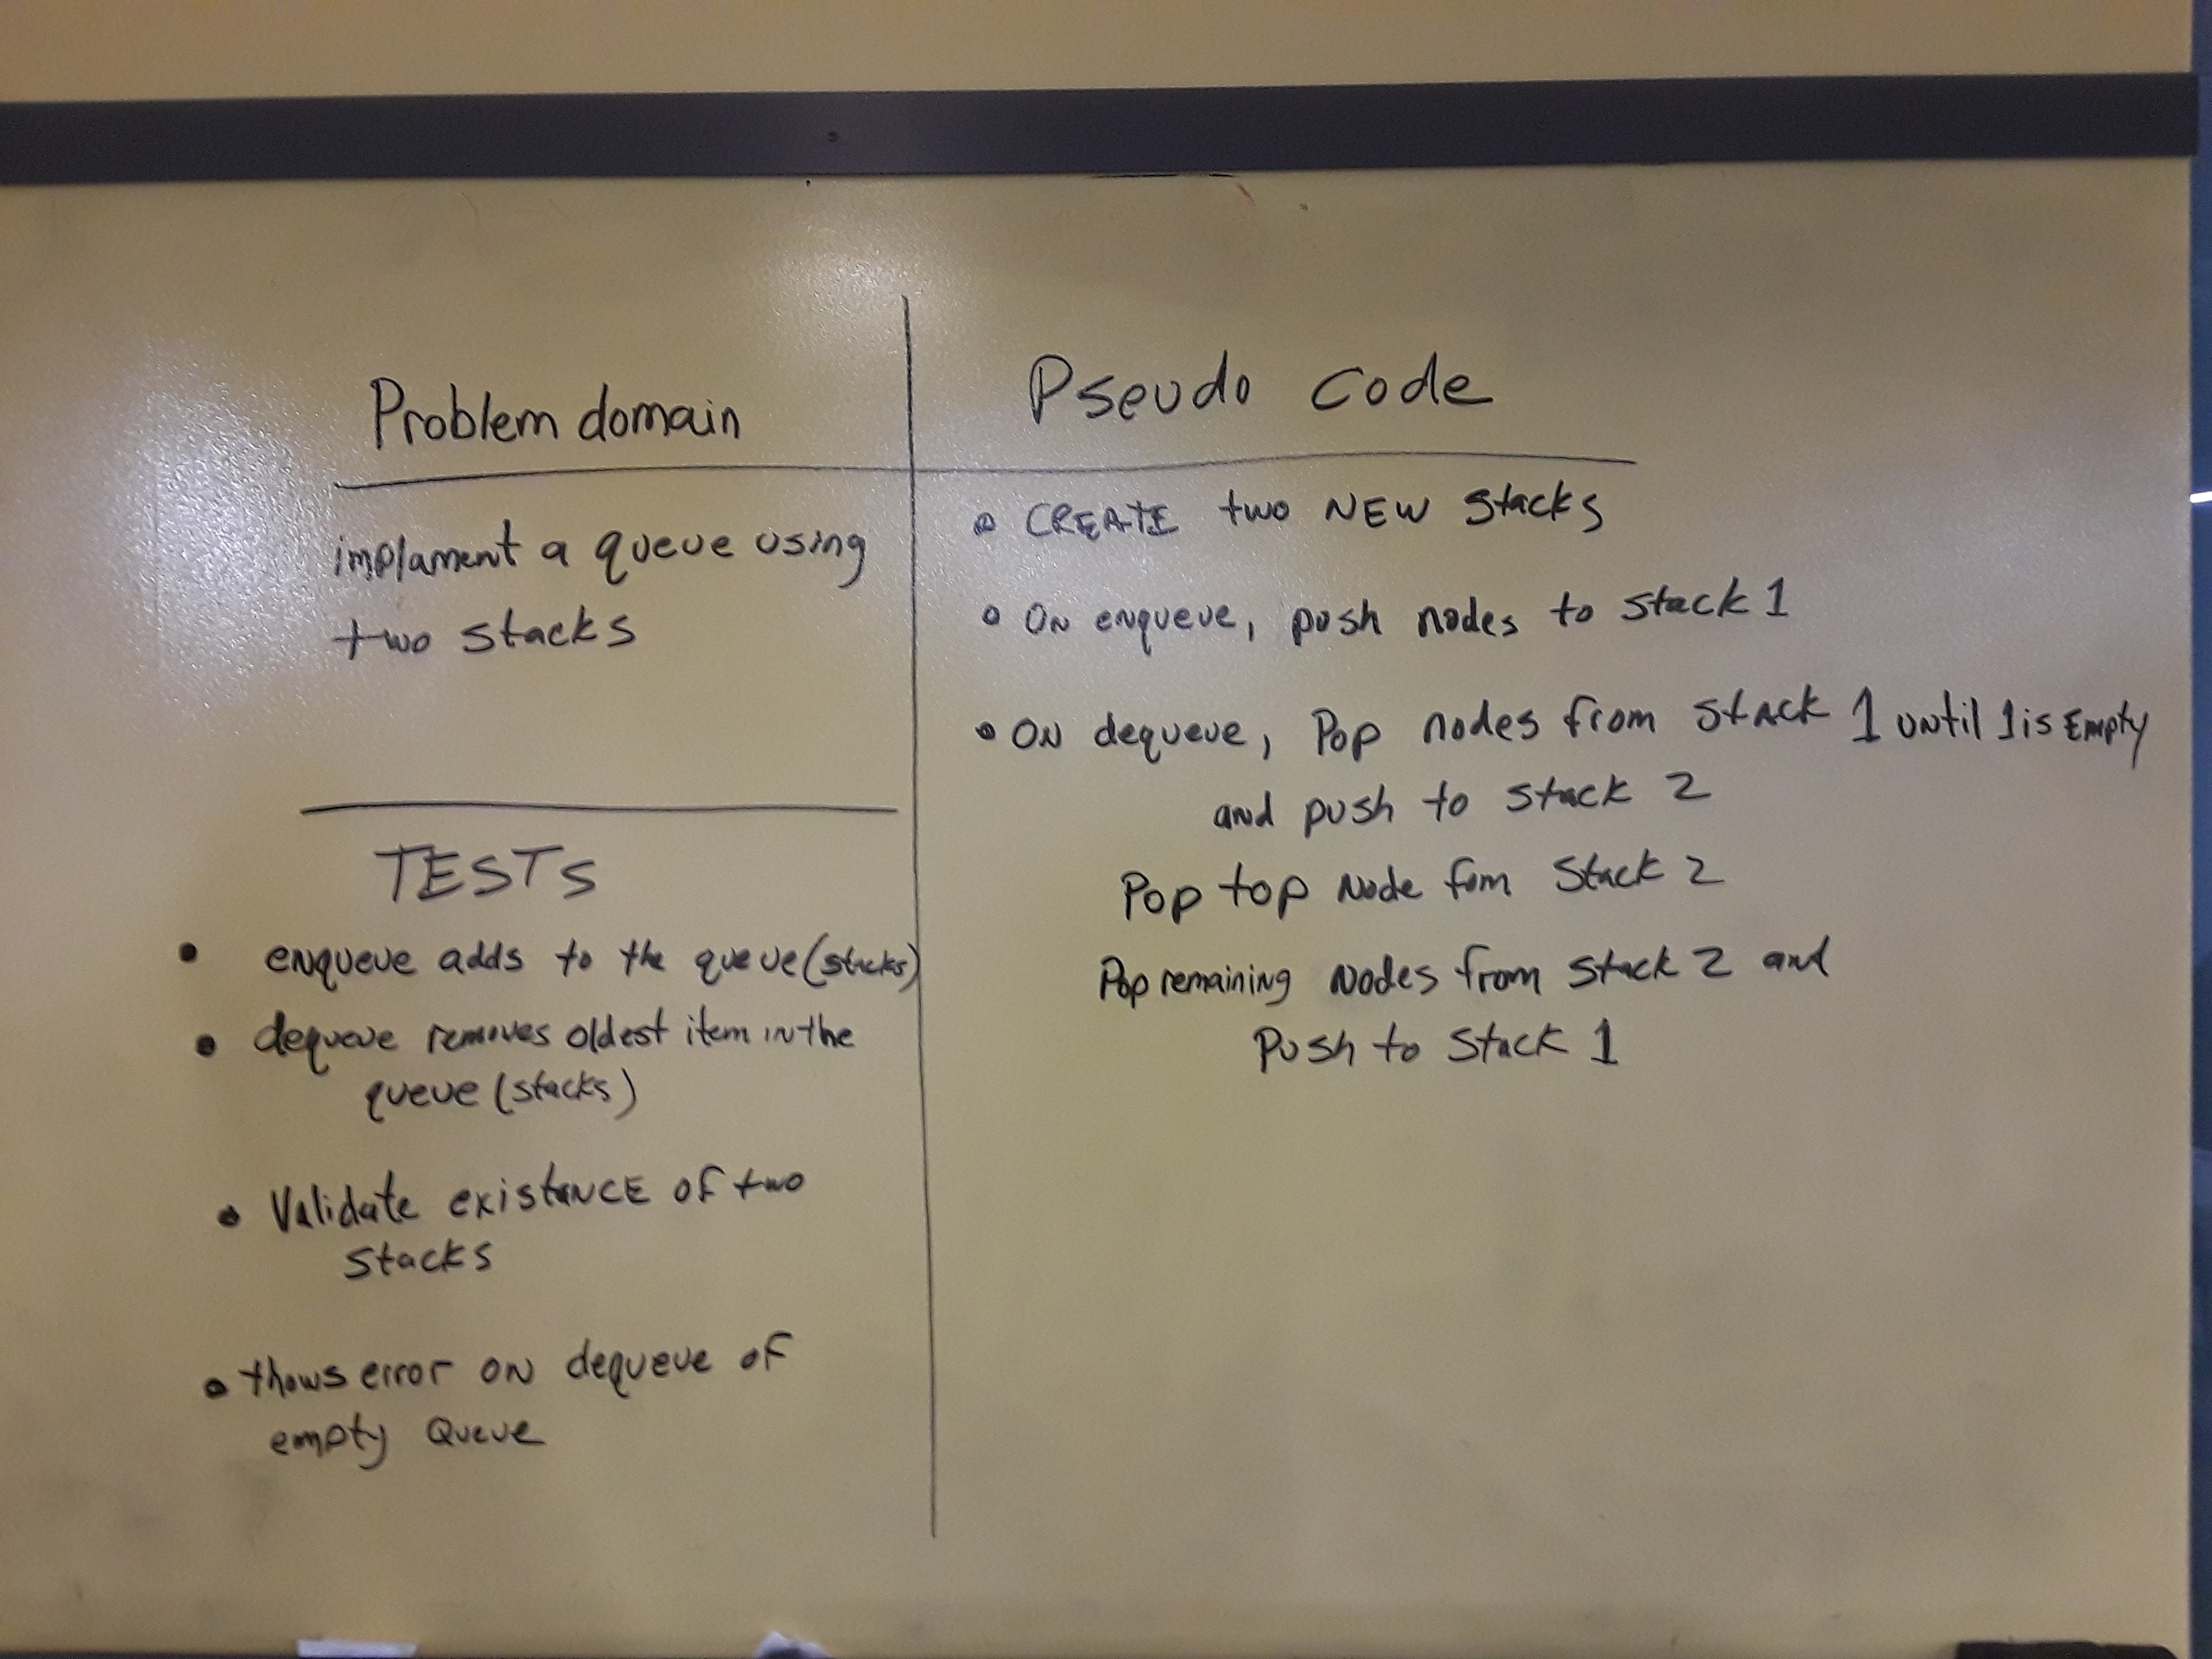 Problem domain
implament a queue using
two stacks
TESTS
• enqueue adds to the queue (stacks)
• dequeue removes oldest item in the
queue (stacks)
• Validate existance of two
stacks
• thows error on dequeue of
empty Queue
Pseudo code
• CREATE two NEW Stacks
• ON enqueue, push nodes to stack 1
• ON dequeue, Pop nodes from stack 1 until 1 is Empty
and push to stack 2
Pop top Node fom Stack 2
Pop remaining Nodes from Stack 2 and
Push to Stack 1